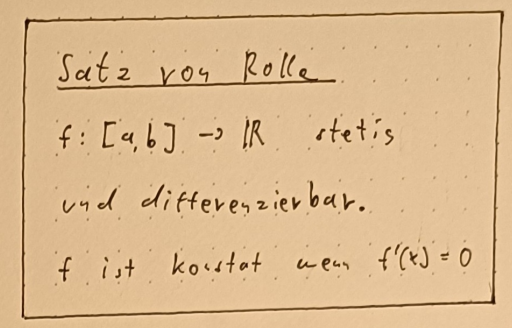 Satz von Rolle
f: [a,b] → ℝ stetis
und differenzierbar.
f ist konstat wenn f'(x) = 0